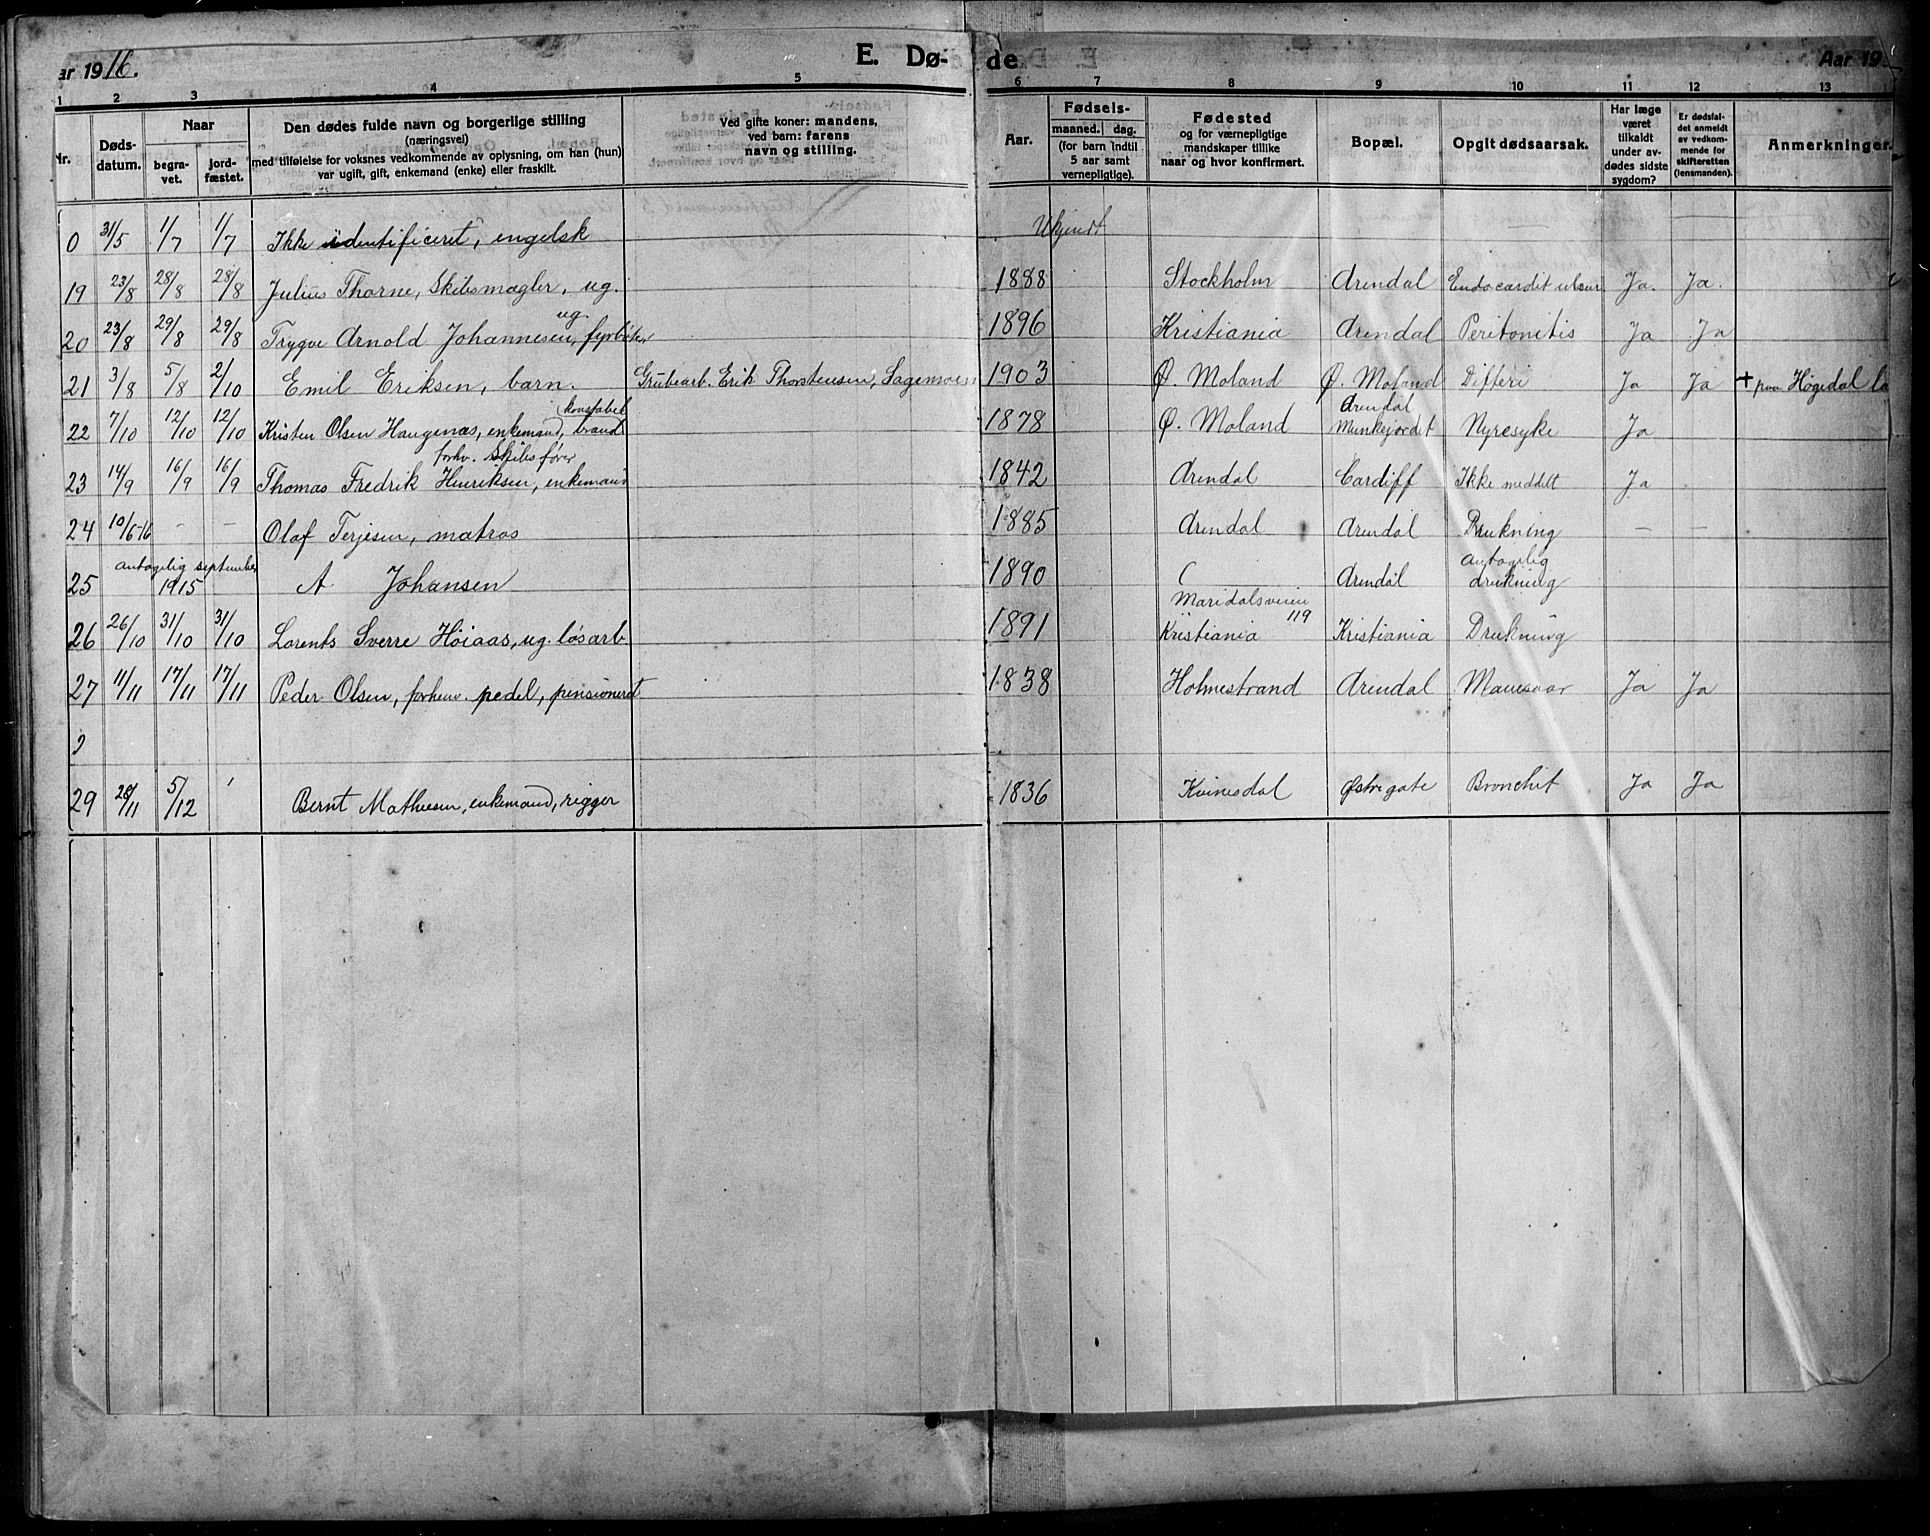 ar 1916. E. Dø- de Aar 19
1 2 3 4 5 6 7 8 9 10 11 12 13
Nr.
Døds-
datum.
Naar
begra-
vet.
jord-
fæstet.
Den dødes fulde navn og borgerlige stilling
(næringsvei)
med tilføielse for voksnes vedkommende av oplysning, om han (hun)
var ugift, gift, enkemand (enke) eller fraskilt.
Ved gifte koner: mandens,
ved barn: farens
navn og stilling.
Aar.
Fødsels-
maaned. dag.
(for barn indtil
5 aar samt
vernepligtige).
Fødested
og for værnepligtige
mandskaper tillike
naar og hvor konfirmert.
Bopæl.
Opgit dødsaarsak.
Har læge
været
tilkaldt
under av-
dødes sidste
sygdom?
Er dødsfal-
det anmeldt
av vedkom-
mende for
skifteretten
(lensmanden).
Anmerkninger.
0 31/5 1/7 1/7 Ikke identificeret, engelsk Ukjendt — — —
19 23/8 28/8 28/8 Julius Thorne, Skibsmægler, ug. 1888 Stockholm Arendal Endocardit ulcer Ja. Ja.
ug.
20 23/8 29/8 29/8 Trygve Arnold Johannesen, fyrbøter 1896 Kristiania Arendal Peritonitis Ja Ja
21 3/8 5/8 2/10 Emil Eriksen, barn. Grubearb. Erik Thorstensen, Sagemoen 1903 Ø. Moland Ø. Moland Difteri Ja Ja + paa Høgedal
konstabel Arendal
22 7/10 12/10 12/10 Kristen Olsen Haugenæs, enkemand, brand 1878 Ø. Moland Munkejordet Nyresyke Ja
forhv. Skibsfører
23 14/9 16/9 16/9 Thomas Fredrik Henriksen, enkemand 1842 Arendal Cardiff Ikke meddelt Ja
24 10/6-16 — — Olaf Terjesen, matros 1885 Arendal Arendal Drukning — —
antagelig september antagelig
25 1915 A Johansen 1890 Arendal drukning
Maridalsveien
119
26 26/10 31/10 31/10 Lorents Sverre Høiaas, ug. løsarb. 1891 Kristiania Kristiania Drukning
27 11/11 17/11 17/11 Peder Olsen, forhenv. pedel, pensioneret 1838 Holmestrand Arendal Mavesaar Ja Ja
29 28/11 5/12 Bernt Mathiesen, enkemand, rigger 1836 Kvinesdal Østregate Bronchit Ja Ja